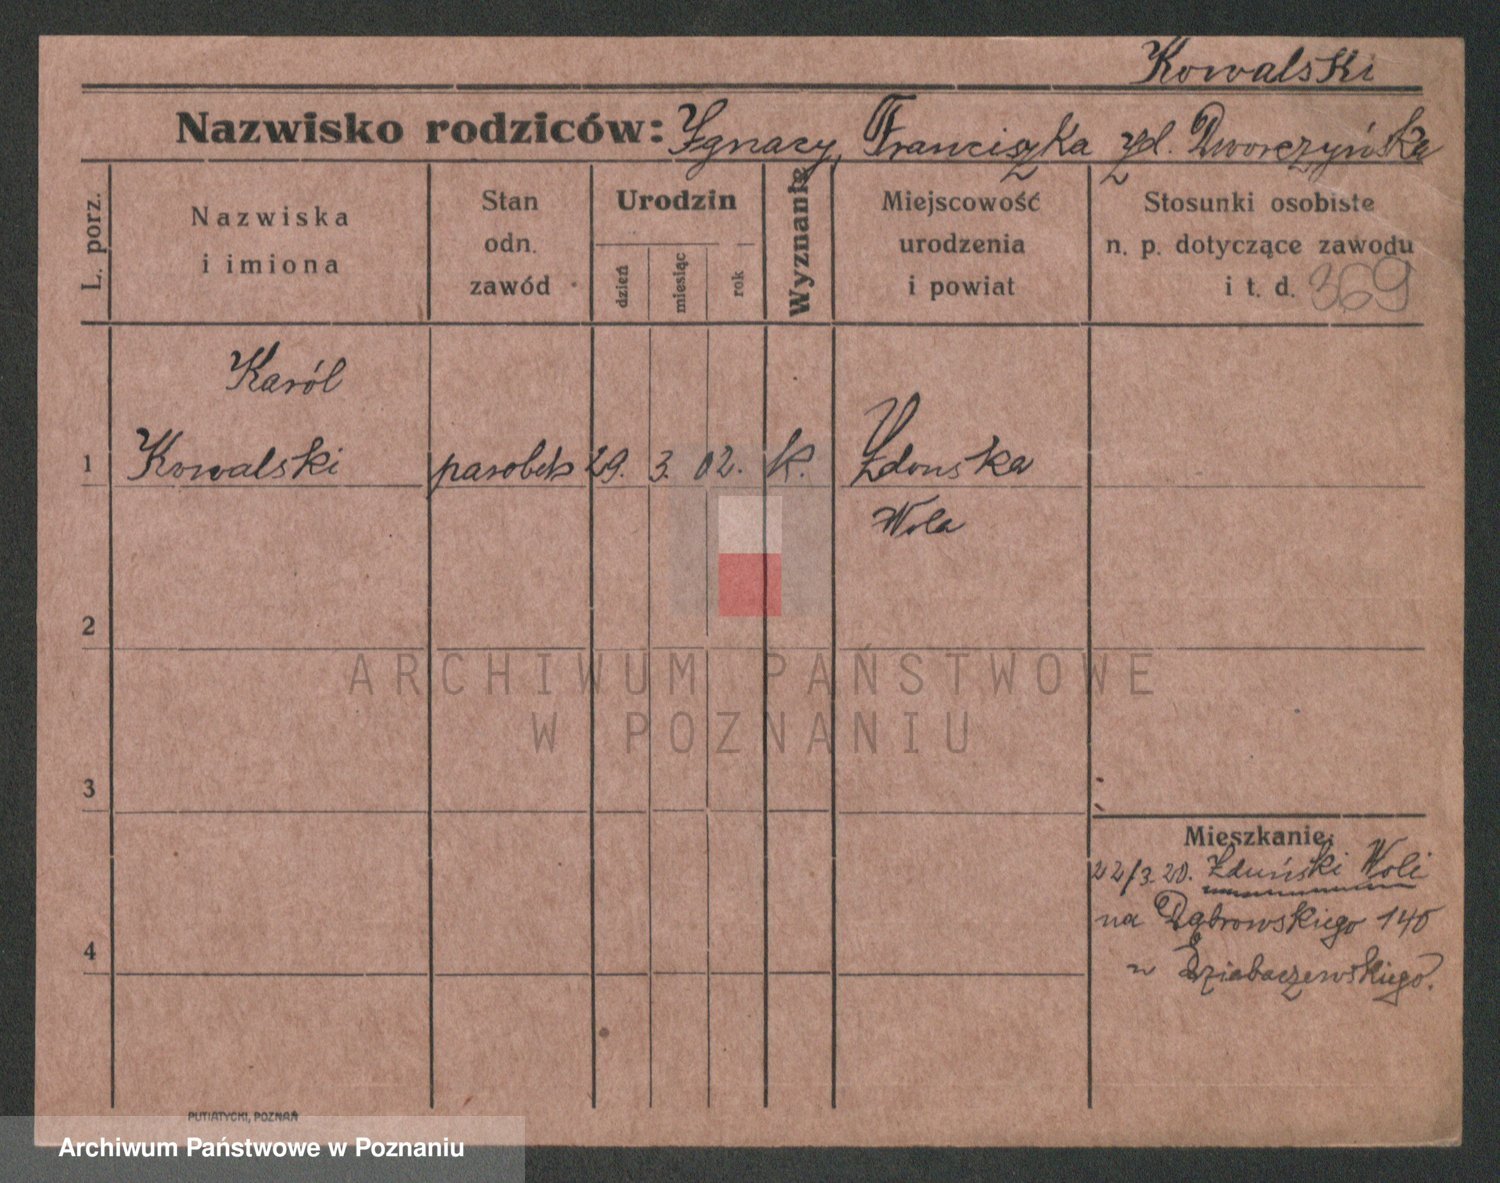 Kowalski
Nazwisko rodziców: Ignacy, Franciszka zd. Dworczyńska
L. porz.
Nazwiska
i imiona
Stan
odn.
zawód
Urodzin
dzień
miesiąc
rok
Wyznanie
Miejscowość
urodzenia
i powiat
Stosunki osobiste
n. p. dotyczące zawodu
i t. d. 369
Karól
1 Kowalski parobek 29. 3. 02. k. Zdonska
Wola
2
ARCHIWUM PAŃSTWOWE
W POZNANIU
3
Mieszkanie:
22/3.20. Zduński Woli
4 na Dąbrowskiego 140
Dziabaczewskiego.
PUTIATYCKI, POZNAŃ
Archiwum Państwowe w Poznaniu